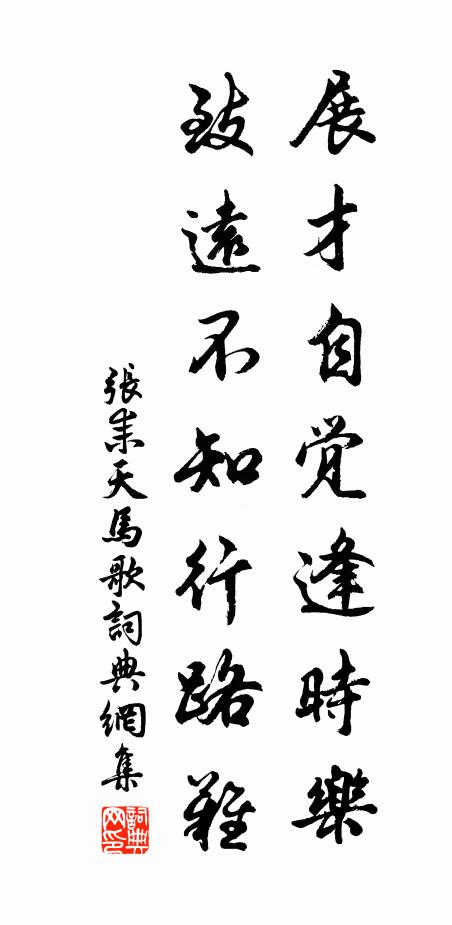 展才自觉逢時樂
致遠不知行路難
張耒天馬歌詞典網集
詞典网印